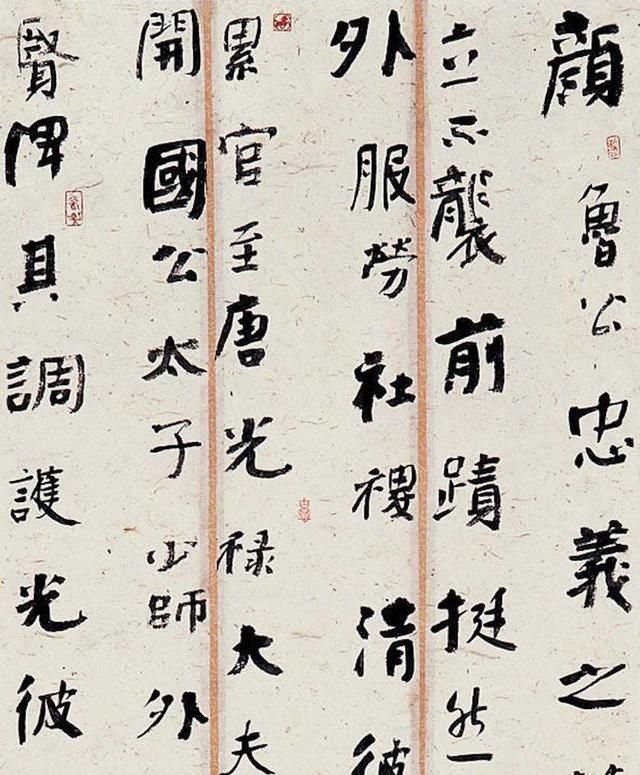 顔魯公忠義之
立不襲前蹟挺然一
外服勞社稷清
累官至唐光禄大夫
開國公太子少師外
賢俾其調護光彼